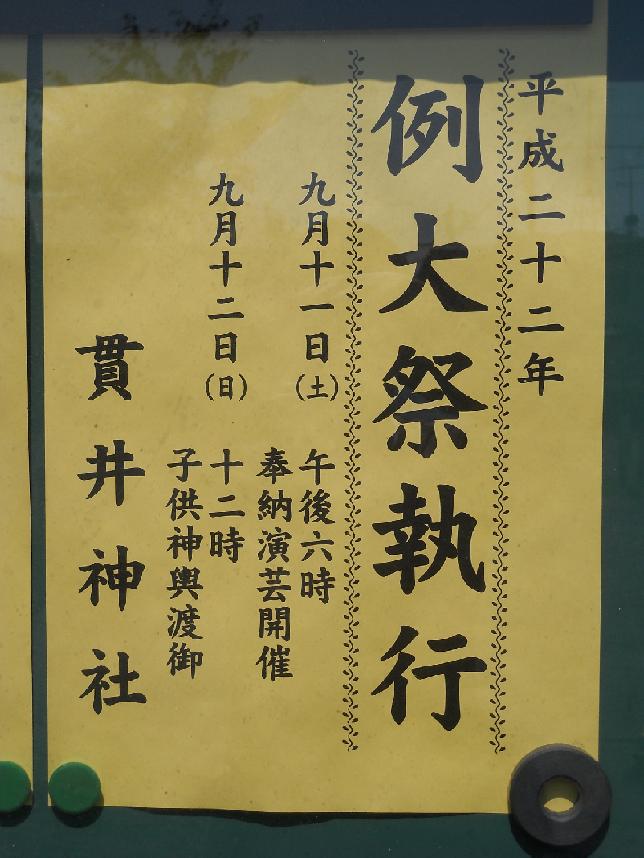 平成二十二年
例大祭執行
九月十一日(土) 午後六時
奉納演芸開催
九月十二日(日) 十二時
子供神輿渡御
貫井神社